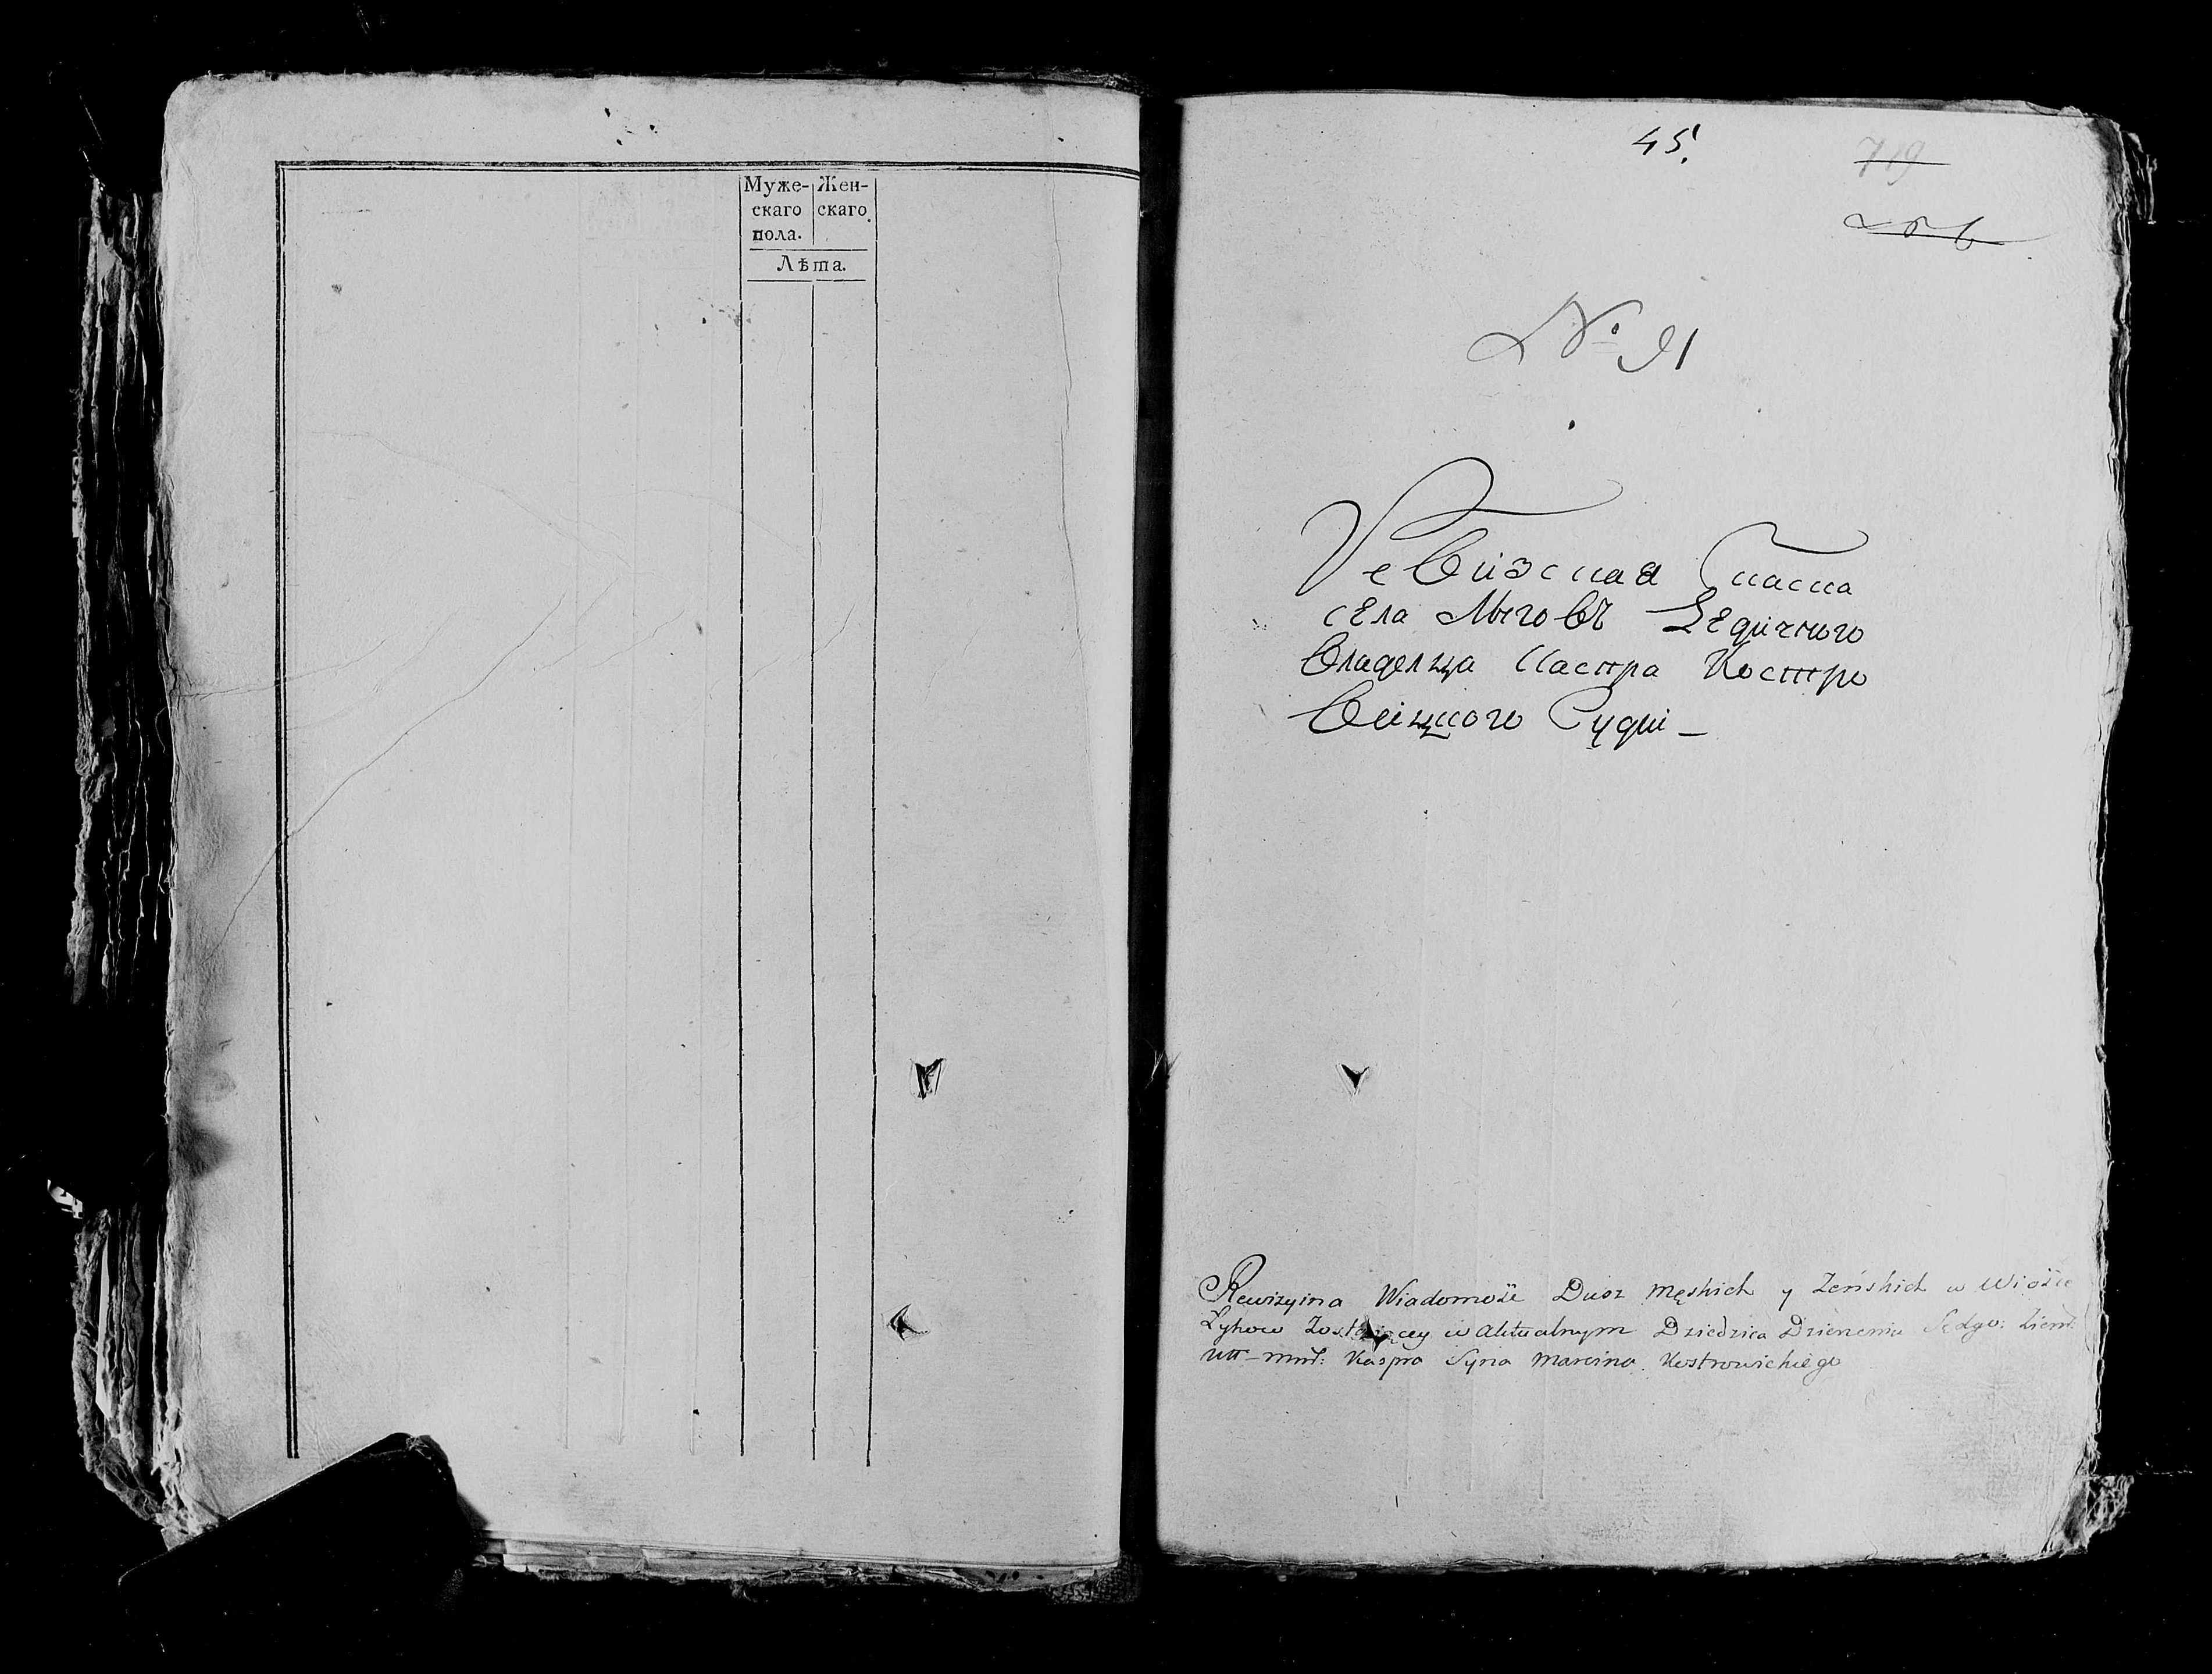 Муже- Жен-
скаго скаго
пола.
Лѣта.
45.
719
№ 91
Ревизская Сказка
села Лыговъ Дедичного
Владелца Каспра Костро
Вицкого Судьи
Rewizyina Wiadomość Dusz męskich y Zeńskich w Wiosce
Łyhow Zostaiącey w Aktualnym Dziedzica Dzierzeniu Sędgo: Ziem:
Kaspra Syna Marcina Kostrowickiego